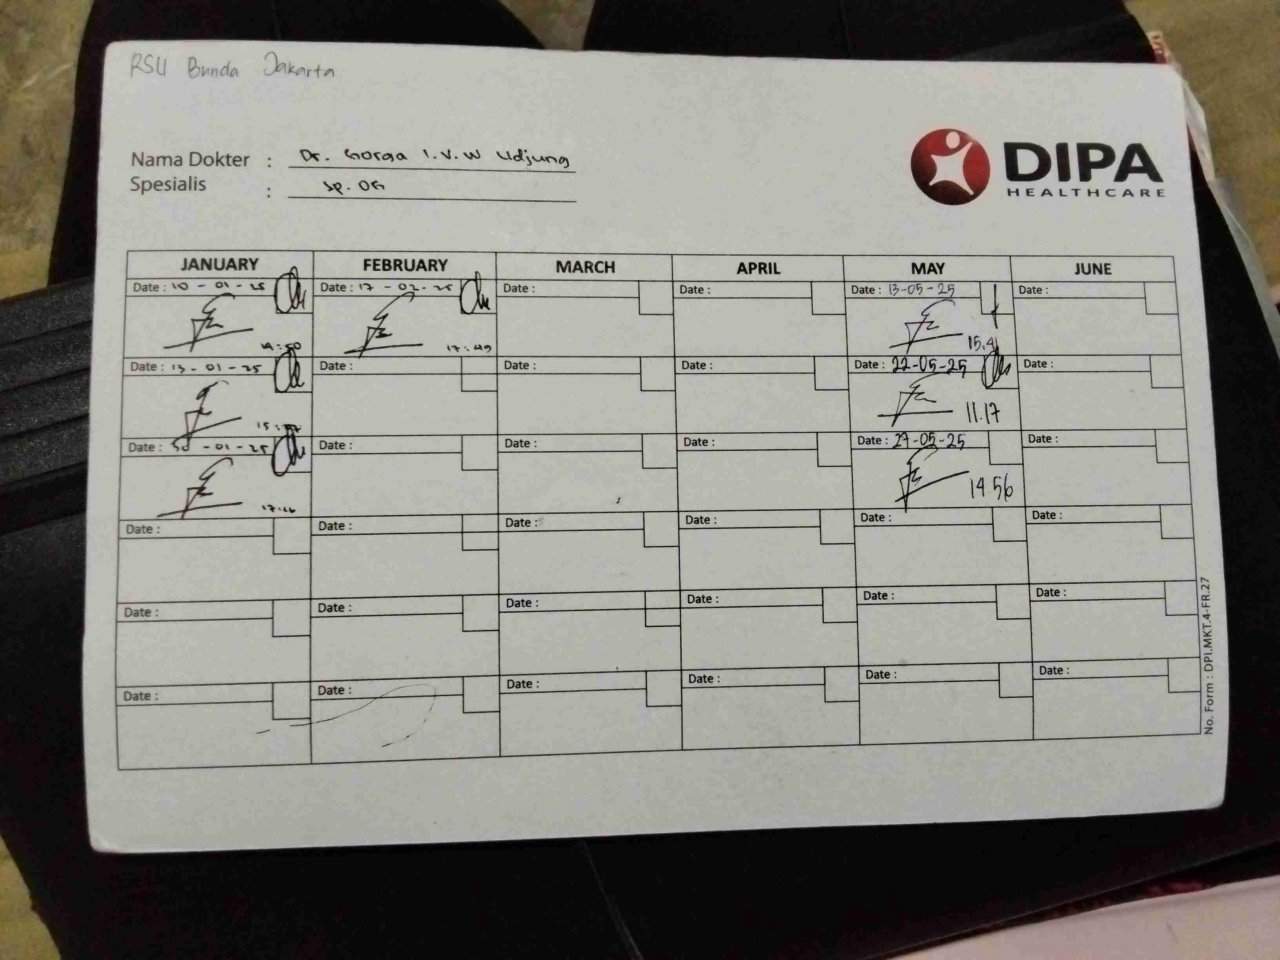 RSU Bunda Jakarta
Nama Dokter : Dr. Gorga I.V.W Udjung
Spesialis : Sp. OG
DIPA
HEALTHCARE
JANUARY FEBRUARY MARCH APRIL MAY JUNE
Date : 10 - 01 - 25 Date : 17 - 02 - 25 Date : Date : Date : 13-05-25 Date :
17:49
Date : 13 - 01 - 25 Date : Date : Date : Date : 22-05-25 Date :
11.17
Date : 30 - 01 - 25 Date : Date : Date : Date : 27-05-25 Date :
14 56
Date : Date : Date : Date : Date : Date :
Date : Date : Date : Date : Date : Date :
Date : Date : Date : Date : Date : Date :
No. Form : DPI.MKT.4-FR.27